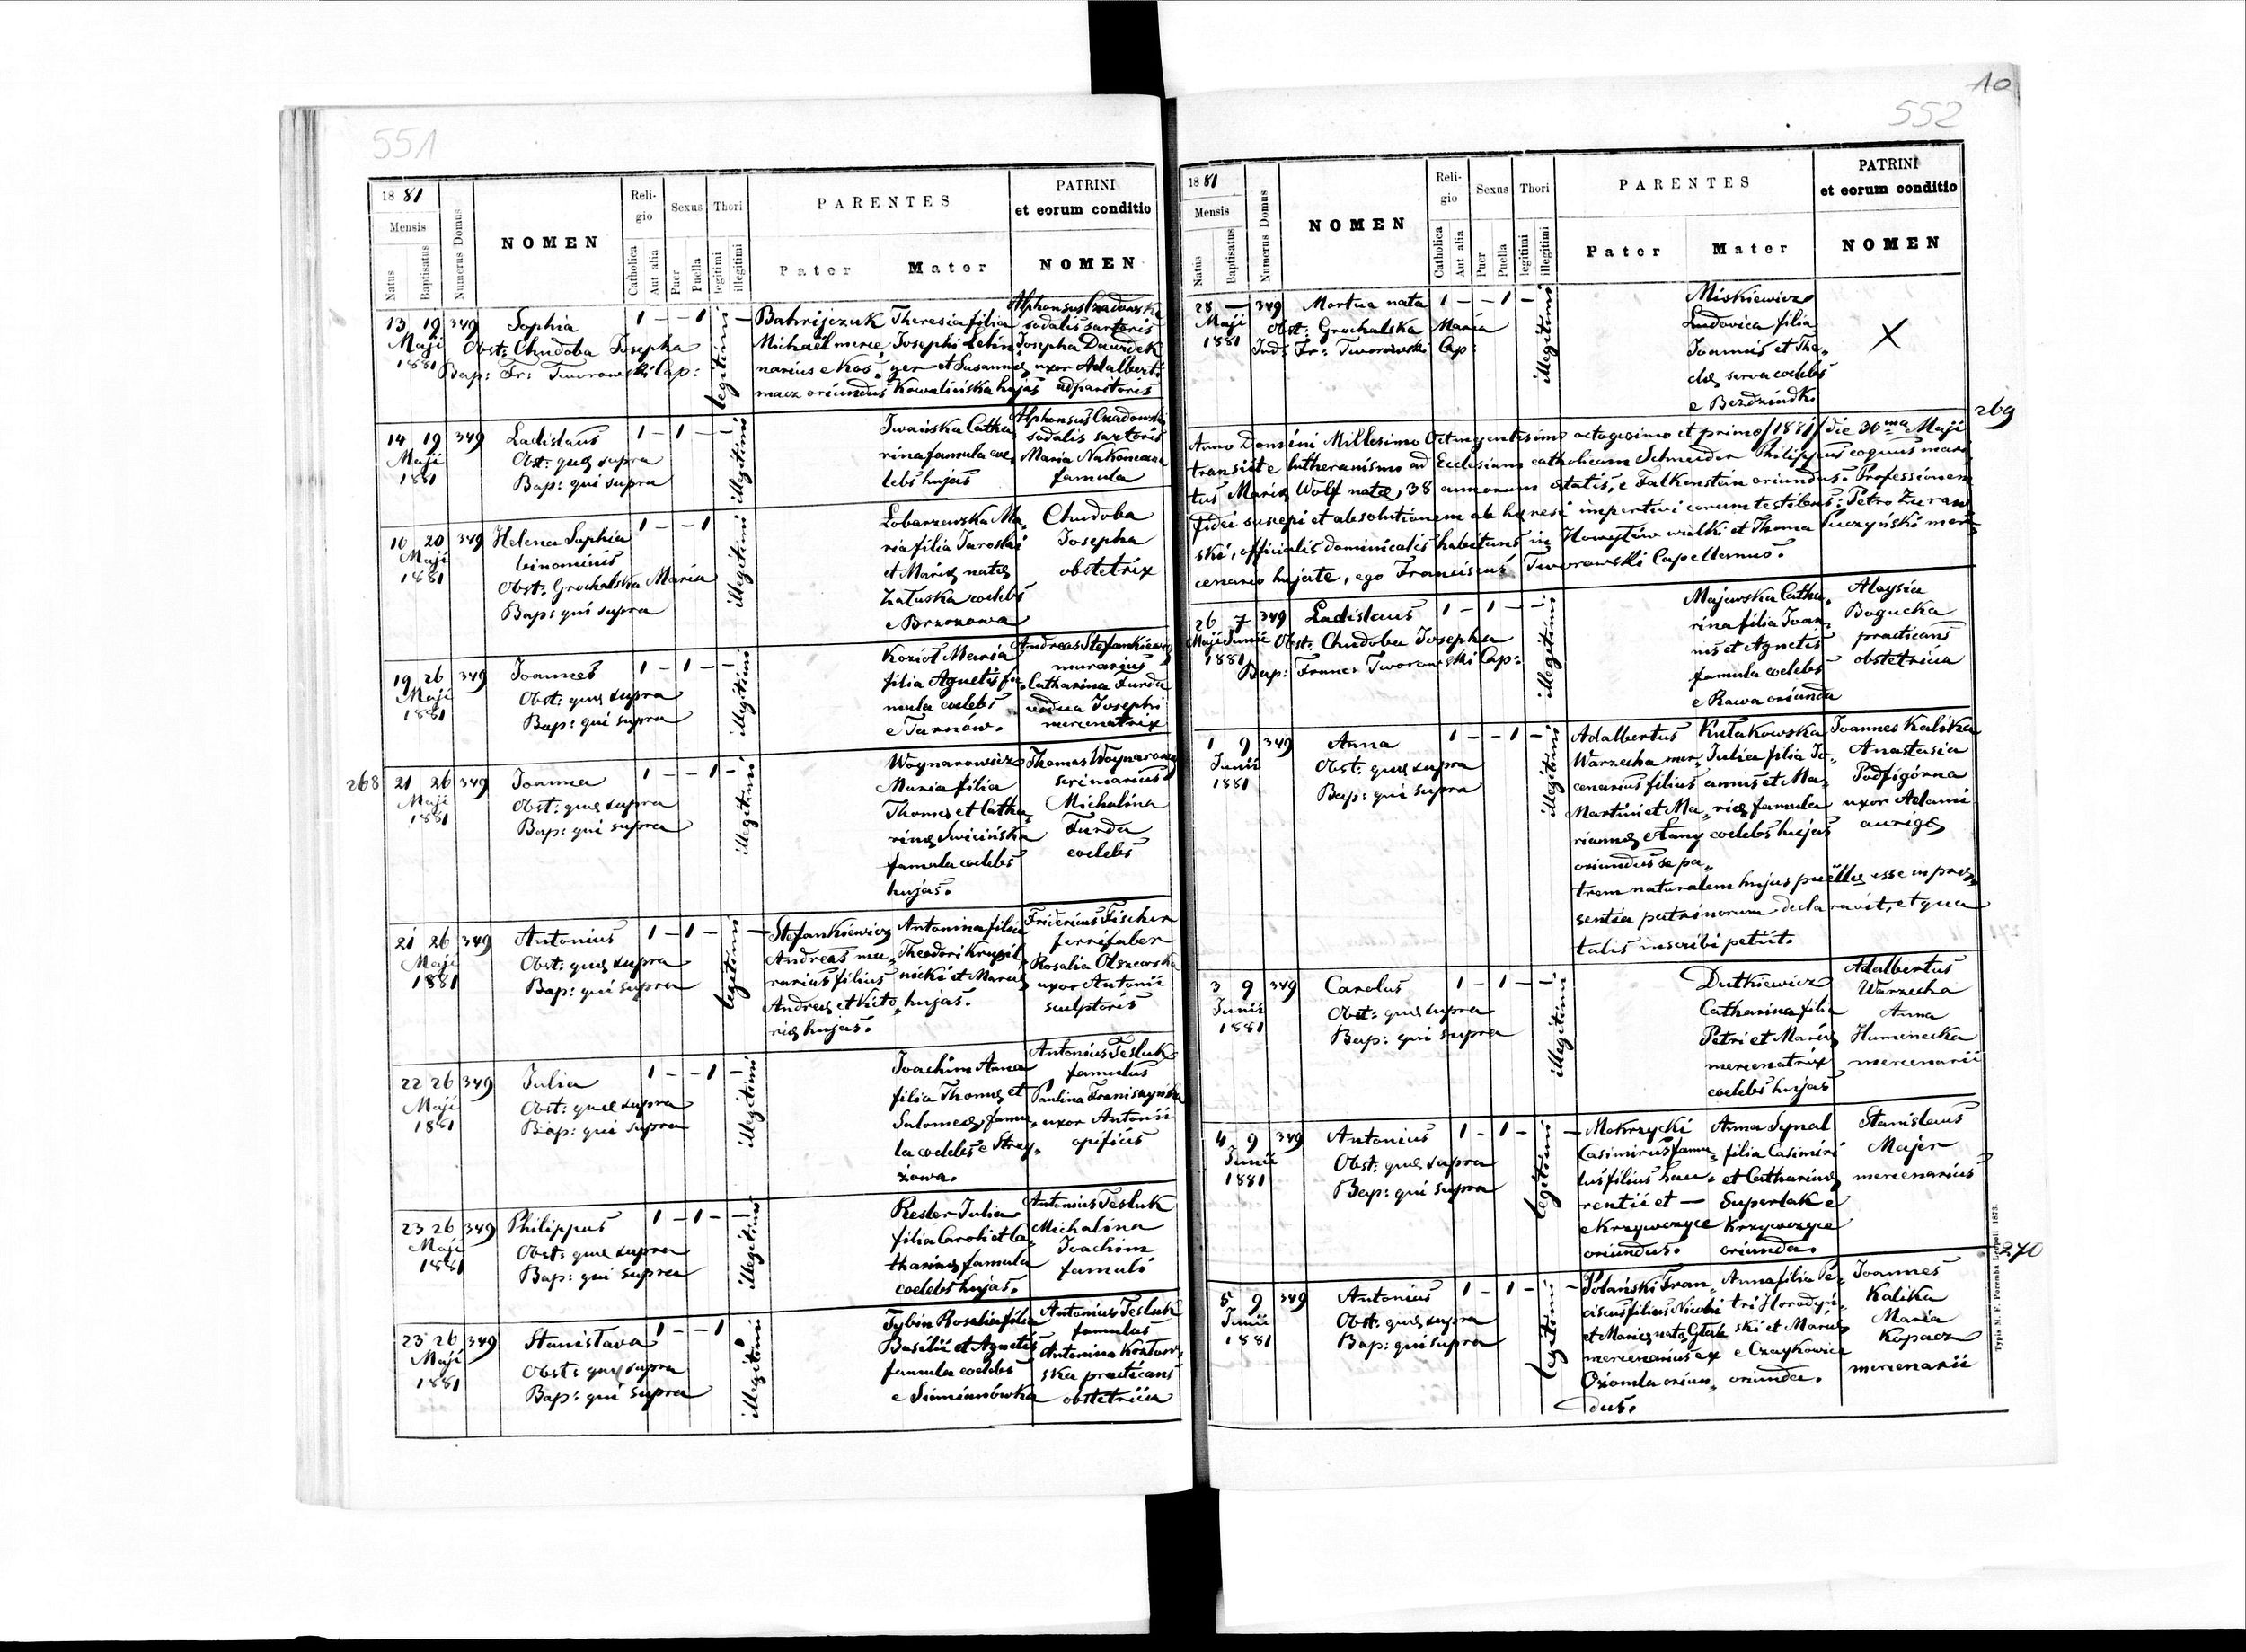 551
1881
Mensis
Natus
Baptisatus
Numerus Domus
NOMEN
Religio
Catholica
Aut alia
Sexus
Puer
Puella
Thori
legitimi
illegitimi
PARENTES
Pater
Mater
PATRINI
et eorum conditio
NOMEN
13 19 349 Sophia 1 - - 1 legitimi -
Maji Obst: Chudoba Josepha
1881 Bap: Fr: Tworowski Cap:
Bahrijczuk
Michaël merce„
narius e Kos„
macz oriundus
Theresia filia
Josephi Lebin„
ger et Susannę
Kowalińska hujas
sodalis sartoris
Josepha Dawidek
uxor Adalberti
adparitoris
14 19 349 Ladislaus 1 - 1 - - illegitimi
Maji Obst: quę supra
1881 Bap: qui supra
Iwańska Catha„
rina famula coe„
lebs hujas
sodalis sartoris
famula
16 20 349 Helena Sophia 1 - - 1 illegitimi
Maji binominis
1881 Obst: Grochalska Maria
Bap: qui supra
Lobarzewska Ma„
ria filia Jaroslai
et Marię natę
Załuska coelebs
e Brzozowa
Chudoba
Josepha
obstetrix
19 26 349 Joannes 1 - 1 - - illegitimi
Maji Obst: quę supra
1881 Bap: qui supra
Kozioł Maria
filia Agnetis fa„
mula coelebs
e Tarnów.
Andreas Stefankiewicz
murarius
Catharina Furda
vidua Josephi
mercenatrix
268
21 26 349 Joanna 1 - - 1 - illegitimi
Maji Obst: quę supra
1881 Bap: qui supra
Woynarowicz
Maria filia
Thomę et Catha„
rinę Swicińska
famula coelebs
hujas.
Thomas Woynarowicz
scriniarius
Michalina
Furda
coelebs
21 26 349 Antonius 1 - 1 - legitimi -
Maji Obst: quę supra
1881 Bap: qui supra
Stefankiewicz
Andreas mu„
rarius filius
Andreę et Victo„
rię hujas.
Antonina filia
Theodori Krupil„
nicki et Marię
hujas.
Fridericus Fischer
ferrifaber
Rosalia Olszewska
uxor Antonii
sculptoris
22 26 349 Julia 1 - - 1 - illegitimi
Maji Obst: quę supra
1881 Bap: qui supra
Joachim Anna
filia Thomę et
Salomeę, famu„
la coelebs e Strzy„
żowa.
Antonius Tesluk
famulus
Paulina
uxor Antonii
opificis
23 26 349 Philippus 1 - 1 - - illegitimi
Maji Obst: quę supra
1881 Bap: qui supra
Resler Julia
filia Caroli et Ca„
tharinę famula
coelebs hujas.
Antonius Tesluk
Michalina
Joachim
famuli
23 26 349 Stanislava 1 - - 1 illegitimi
Maji Obst: quę supra
1881 Bap: qui supra
Tybin Rosalia filia
Basilii et Agnetis
famula coelebs
e Simianówka
Antonius Tesluk
famulus
Antonina
ska practicans
obstetricia
10
552
1881
Mensis
Natus
Baptisatus
Numerus Domus
NOMEN
Religio
Catholica
Aut alia
Sexus
Puer
Puella
Thori
legitimi
illegitimi
PARENTES
Pater
Mater
PATRINI
et eorum conditio
NOMEN
28 — 349 Mortua nata 1 - - 1 - illegitimi
Maji Obst: Grochalska Maria
1881 Ind: Fr: Tworowski Cap:
Miskiewicz
Ludovica filia
Joannis et The„
clę serva coelebs
e Bezdzindki
X
269
Anno Domini Millesimo Octingentesimo octogesimo et primo /1881/ die 30ma Maji
transiit e lutheranismo ad Ecclesiam catholicam Schneider Philippus coquus mari„
tus Marię Wolf natę, 38 annorum ętatis, e Falkenstein oriundus. Professionem
fidei suscepi et absolutionem ab hęresi impertivi coram testibus: Petro Żuraw
ski, officialis dominicalis habitans in Howyłów wielki et Thoma Puczyński mer„
cenario hujate, ego Franciscus Tworowski Capellanus.
26 7 349 Ladislaus 1 - 1 - - illegitimi
Maji Junii Obst. Chudoba Josepha
1881 Bap: Franc: Tworowski Cap:
Majewska Catha„
rina filia Joan„
nis et Agnetis
famula coelebs
e Rawa oriunda
Aloysia
Bogucka
practicans
obstetricia
1 9 349 Anna 1 - - 1 - illegitimi
Junii Obst: quę supra
1881 Bap: qui supra
Adalbertus
Warzecha mer„
cenarius filius
Martini et Ma„
riannę e Łany
oriundus se pa„
trem naturalem hujus puellę esse in prę„
sentia patrinorum declaravit, et qua
talis inscribi petiit.
Kułakowska
Julia filia Jo„
annis et Ma„
rię famula
coelebs hujas
Joannes Kalika
Anastasia
Podfigórna
uxor Adami
aurigę
3 9 349 Carolus 1 - 1 - - illegitimi
Junii Obst: quę supra
1881 Bap: qui supra
Dutkiewicz
Catharina filia
Petri et Marię
mercenatrix
coelebs hujas
Adalbertus
Warzecha
Anna
Humenecka
mercenarii
4 9 349 Antonius 1 - 1 - legitimi -
Junii Obst: quę supra
1881 Bap: qui supra
Mokrzycki
Casimirus famu„
lus filius Lau„
rentii et —
e Krzywczyce
oriundus.
Anna Synal
filia Casimiri
et Catharinę
Superlak e
Krzywczyce
oriunda.
Stanislaus
Majer
mercenarius
270
5 9 349 Antonius 1 - 1 - legitimi -
Junii Obst: quę supra
1881 Bap: qui supra
Polański Fran„
ciscus filius Nicolai
et Marię natę
mercenarius ex
Ożomla oriun„
dus.
Anna filia Pe„
tri Horodyń„
ski et Marię
e Czaykowice
oriunda.
Joannes
Kalika
Maria
Kopacz
mercenarii
Typis M. F. Poremba Leopoli 1873.